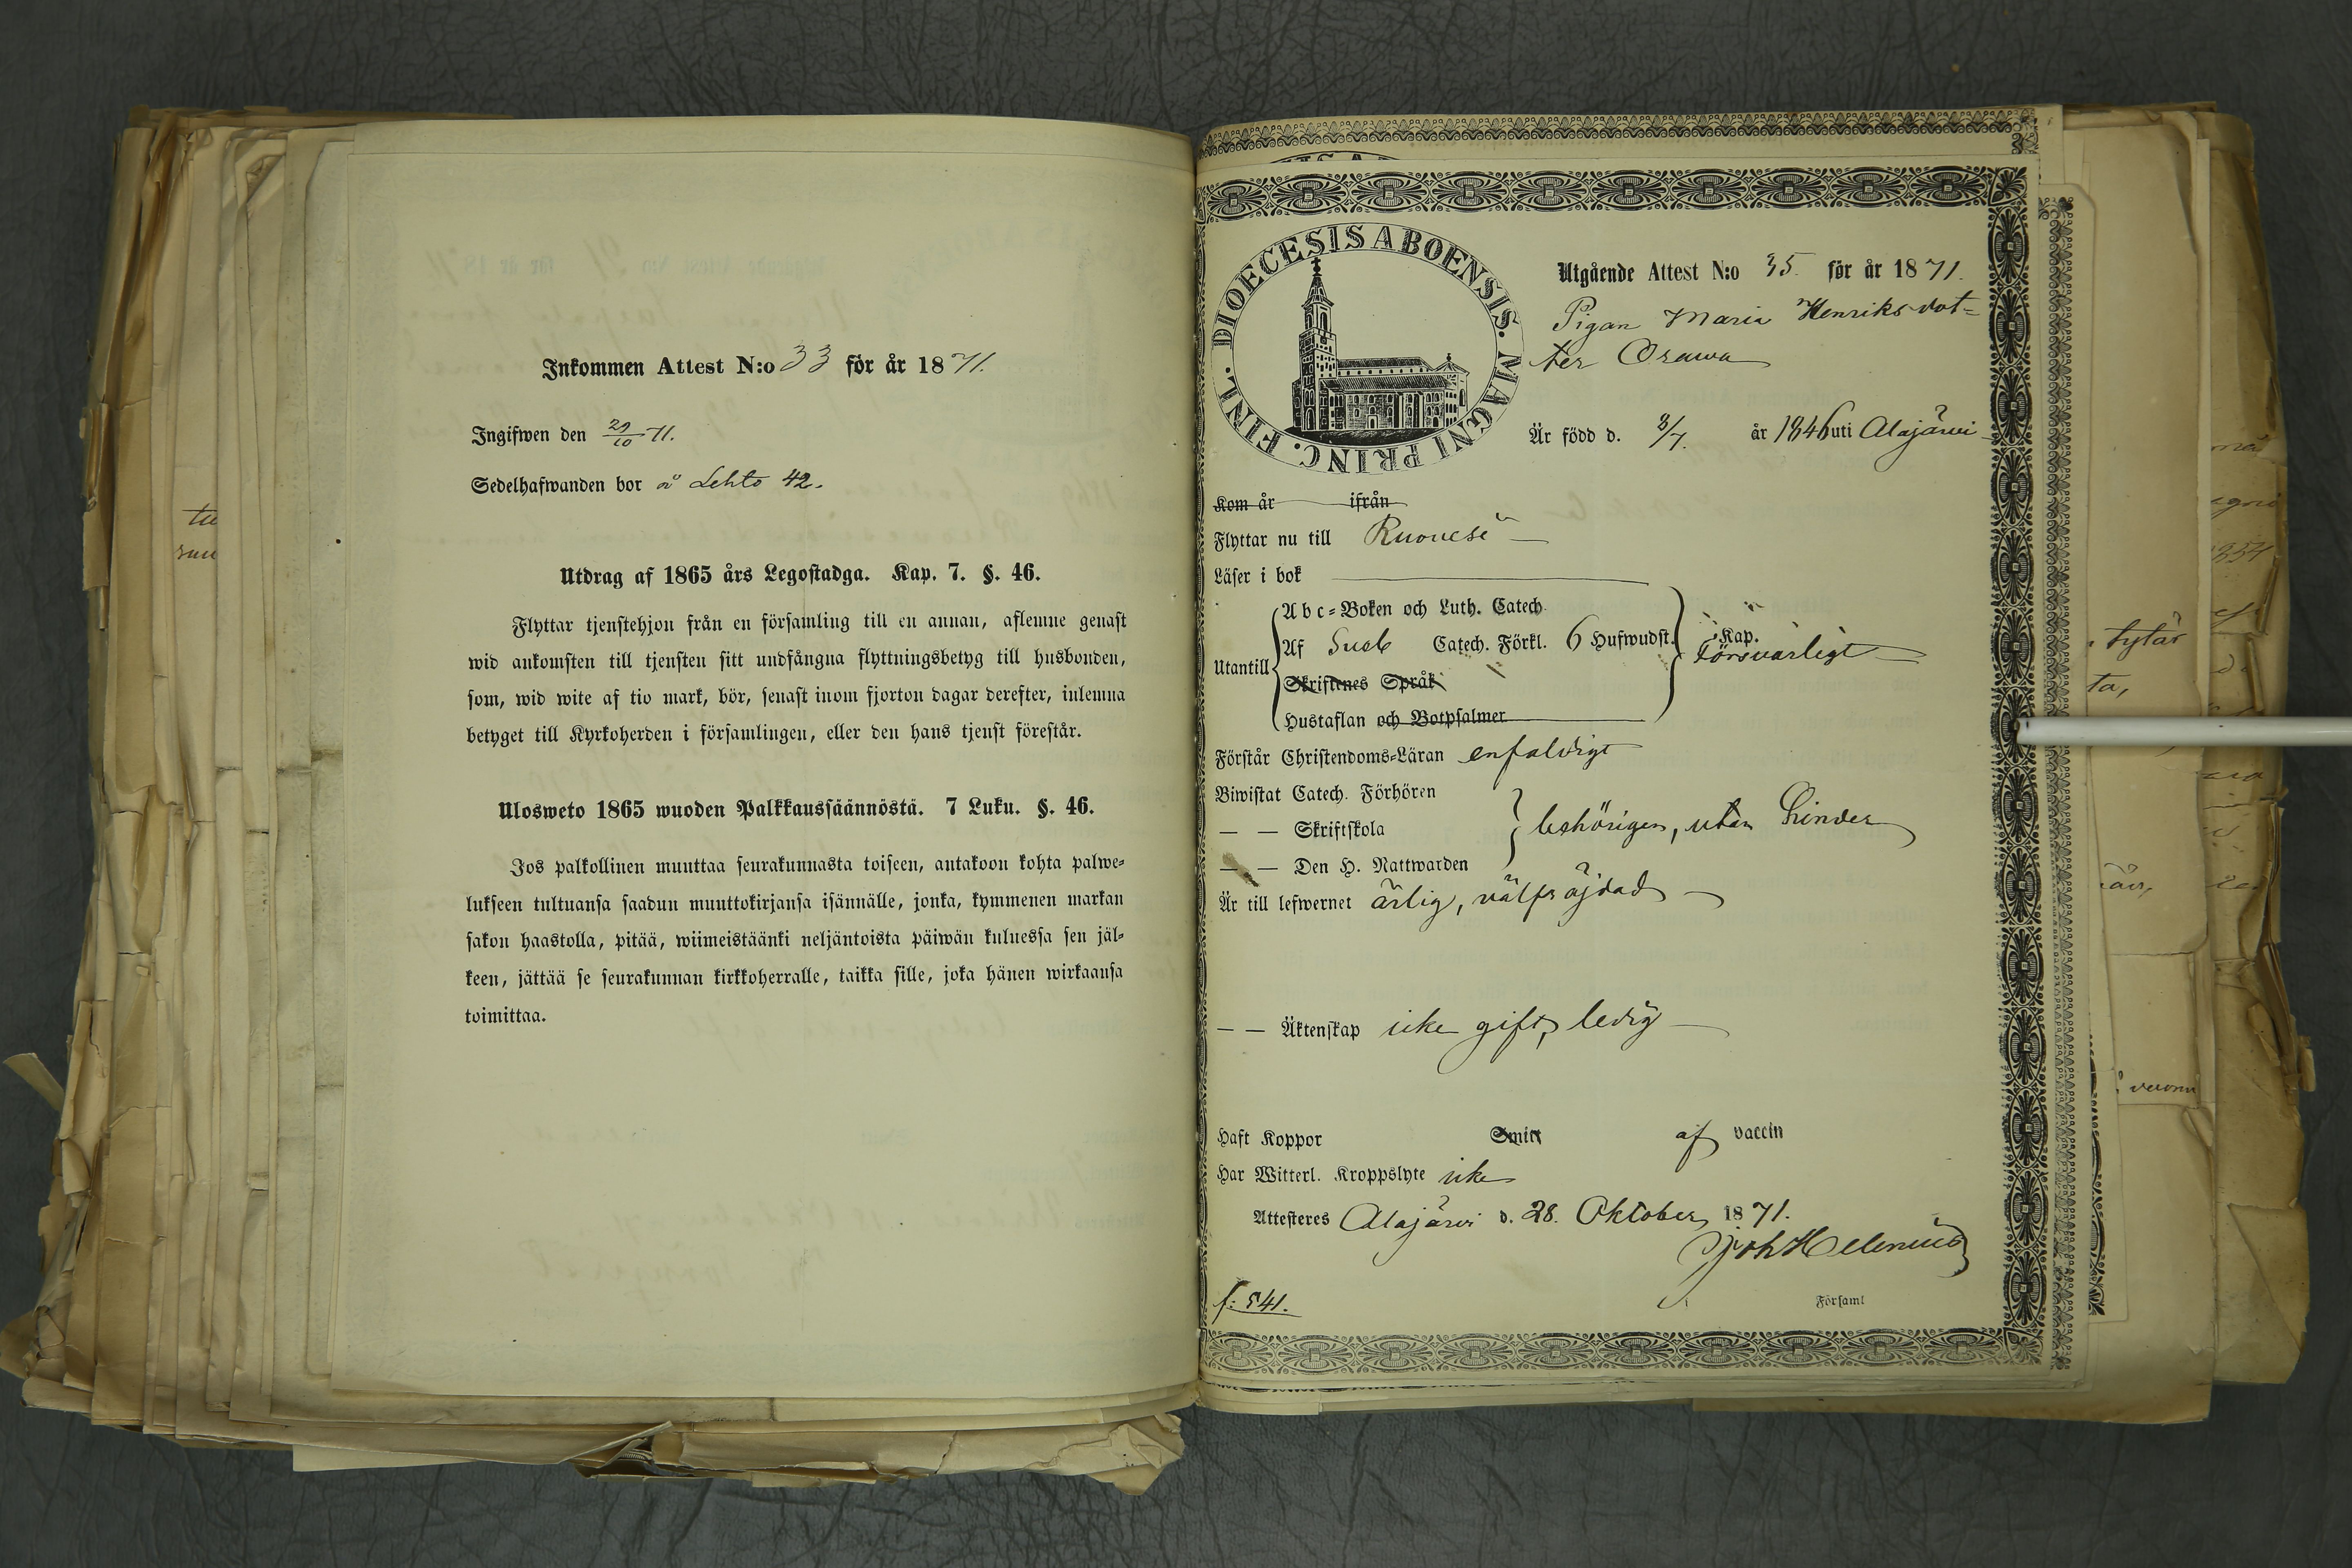 Inkommen Attest N:o 33 för år 1871.
Ingifwen den 29/10 71.
Sedelhafwanden bor å Lehto 42.
Utdrag af 1865 års Legostadga. Kap. 7. §. 46.
Flyttar tjenstehjon från en församling till en annan, aflemne genast
wid ankomsten till tjensten sitt undfångna flyttningsbetyg till husbonden,
som, wid wite af tio mark, bör, senast inom fjorton dagar derefter, inlemna
betyget till Kyrkoherden i församlingen, eller den hans tjenst förestår.
Ulosweto 1865 wuoden Palkkaussäännöstä. 7 Luku. §. 46.
Jos palkollinen muuttaa seurakunnasta toiseen, antakoon kohta palwe-
lukseen tultuansa saadun muuttokirjansa isännälle, jonka, kymmenen markan
sakon haastolla, pitää, wiimeistäänki neljäntoista päiwän kuluessa sen jäl-
keen, jättää se seurakunnan kirkkoherralle, taikka sille, joka hänen wirkaansa
toimittaa.
DIOECESIS ABOENSIS. MAGNI PRINC. FINL.
Utgående Attest N:o 35. för år 1871.
Pigan Maria Henriksdot-
ter Orawa
Är född d. 3/7. år 1846 uti Alajärwi
Kom år ifrån
Flyttar nu till Ruovesi
Läser i bok
Abc-Boken och Luth. Catech.
Utantill Af Sueb Catech. Förkl. 6 Hufwudst. Kap.
försvarligt
Skriftenes Språk
Hustaflan och Botpsalmer
Förstår Christendoms-Läran enfaldigt
Biwistat Catech. Förhören
— — Skriftskola behörigen, utan hinder
— — Den H. Nattwarden
Är till lefwernet ärlig, välfräjdad
— — Äktenskap icke gift, ledig
Haft Koppor Smitt af vaccin
Har Witterl. Kroppslyte icke
Attesteres Alajärwi d. 28. Oktober 1871.
Joh Helenius
f: 541.
Församl